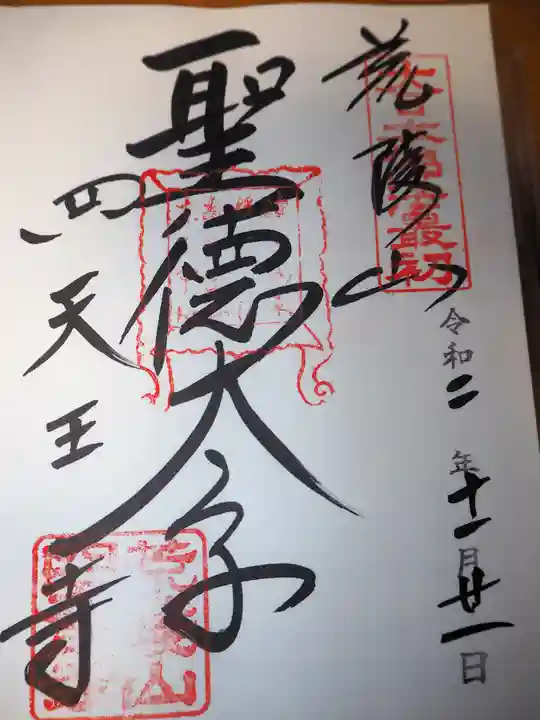 荒陵山
令和二年十一月廿一日
聖德太子
四天王寺